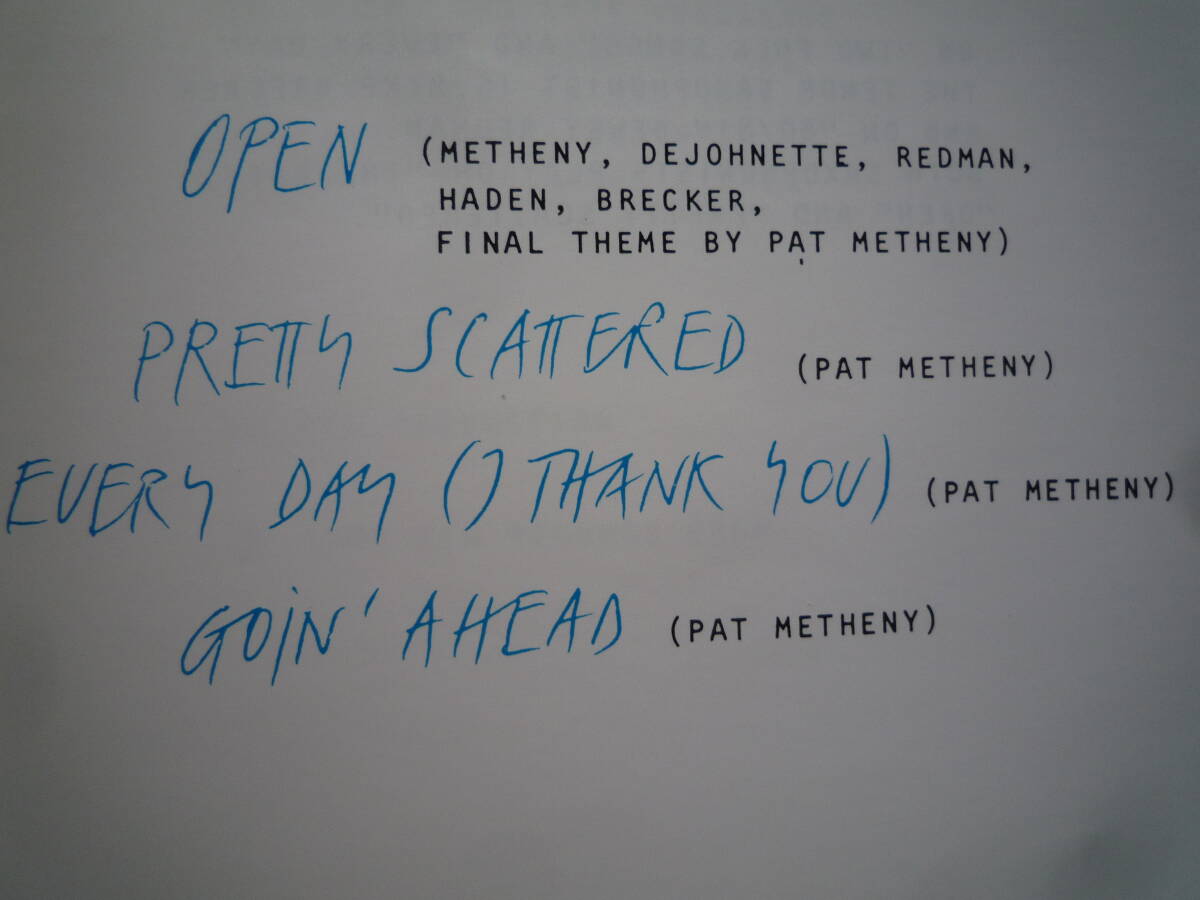 OPEN (METHENY, DEJOHNETTE, REDMAN,
HADEN, BRECKER,
FINAL THEME BY PAT METHENY)
PRETTY SCATTERED (PAT METHENY)
EVERY DAY (I THANK YOU) (PAT METHENY)
GOIN' AHEAD (PAT METHENY)